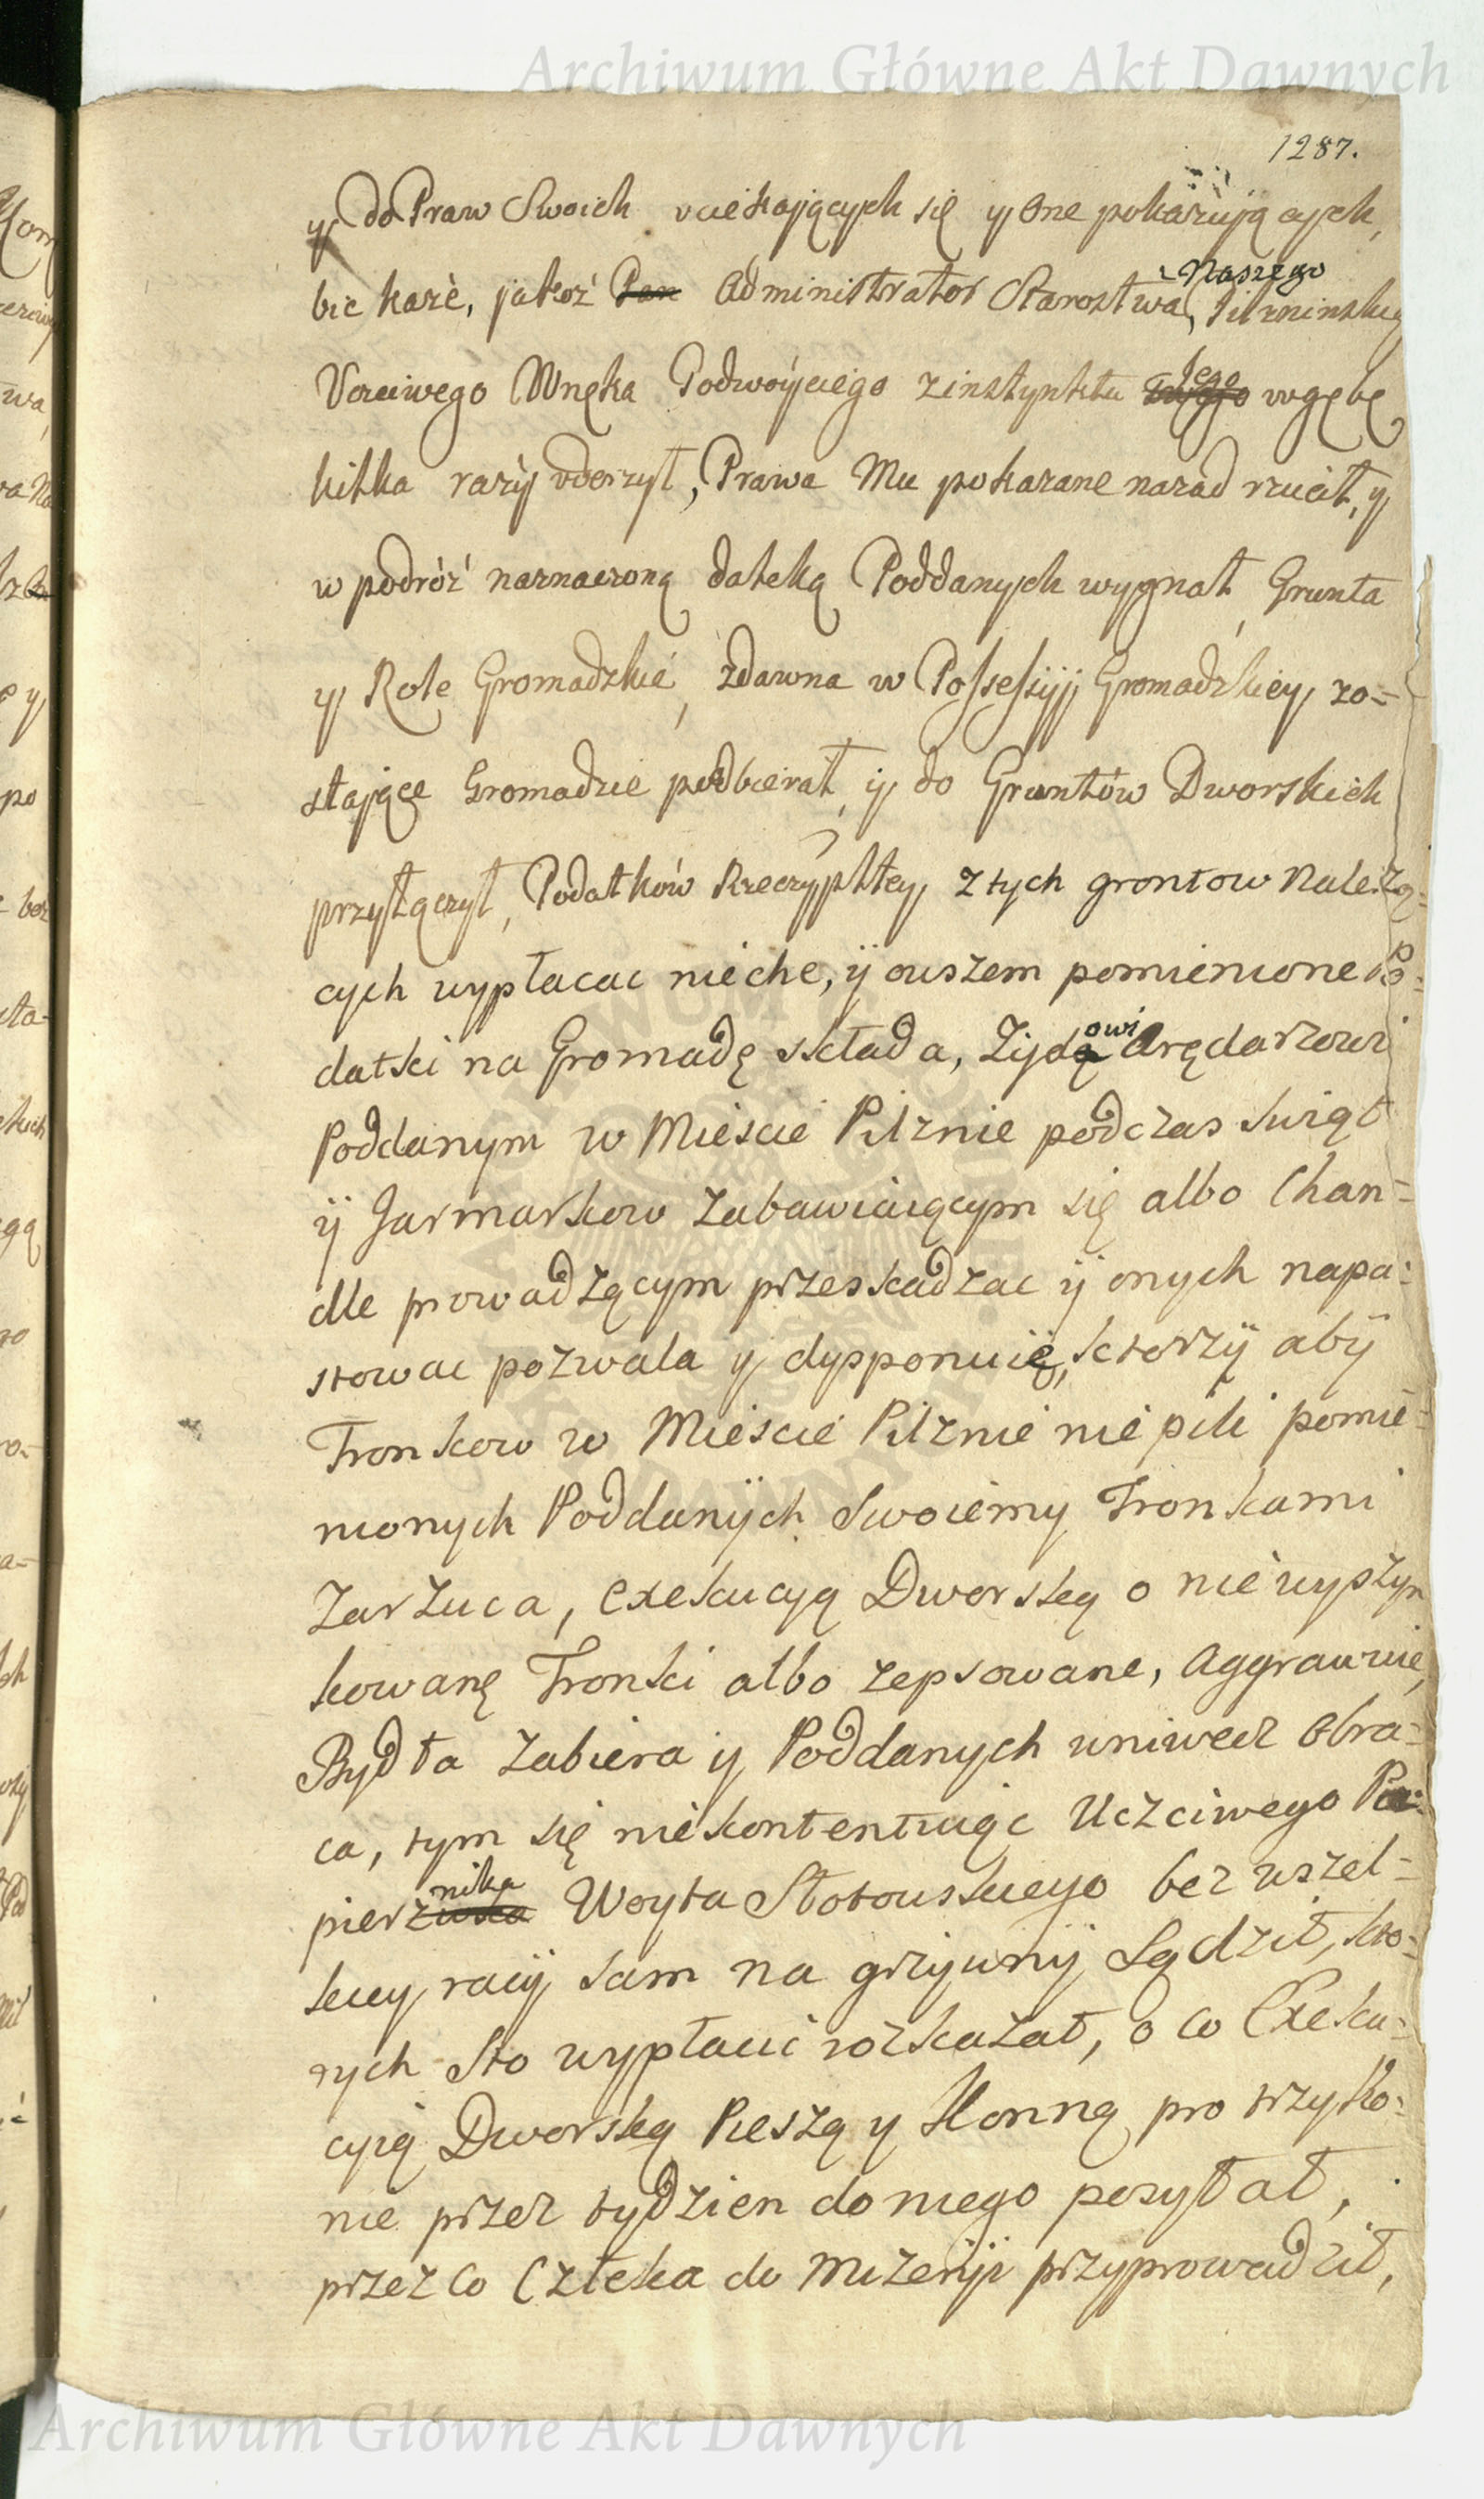 Archiwum Główne Akt Dawnych
1287.
y do Praw Swoich uciekających się y One pokazujących,
bic każe, jakoż Pan Administrator Starostwa Naszego Pilznińskiego
Uczciwego Wnęka Podwoyciego z instynktu Jego w gębę
kilka razy uderzył, Prawa Mu pokazane nazad rzucił, y
w podróż naznaczoną daleką Poddanych wygnał, Grunta
y Role Gromadzkie, zdawna w Possessyji Gromadzkiey zo=
stające Gromadzie podbierał, y do Gruntów Dworskich
przyłączył, Podatków Rzeczypltey z tych grontow Należą=
cych wypłacac niechc, ÿ owszem pomienione Po=
datki na Gromadę składa, Zÿdowi Arędarzowi
Poddanym w Miescie Pilznie podczas Swiąt
ÿ Jarmarkow Zabawiaiącym się albo Chan=
dle prowadzącym przeskadzac ÿ onych napa=
stowac pozwala y dysponuię, ktorzÿ abÿ
Tronkow w Miescie Pilznie nie pili pomie=
nionych Poddanÿch Swoiemy Tronkami
Zarzuca, Exekucyą Dworską o nie wyszyn
kowanę Tronki albo zepsowane, Aggrawuie,
Bydła Zabiera y Poddanych wniwecz Obra=
ca, tym się nie kontentuiąc Uczciwego Pa=
pierznika Woyta Słotowskiego bez wszel=
kiey racÿi sam na grzywnÿ Sądził, kto=
rych Sto wypłacic rozkazał, o co Exeku=
cyią Dworską Pieszą y Konną pro trzykro=
nie przez tydzien do niego posyłał,
przez co Człeka do Mizerÿi przyprowadził,
Archiwum Główne Akt Dawnych